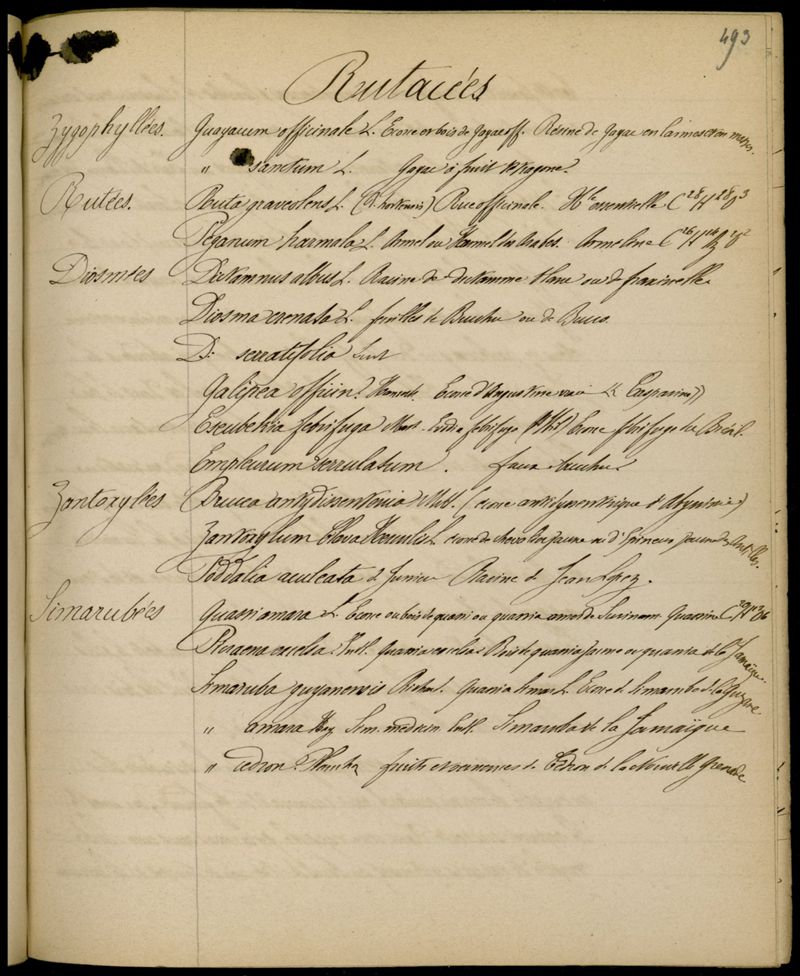 493
Rutacées
Zygophyllées. Guayacum officinale L. Ecorce et bois de Gayac off. Résine de Gayac en larmes et en masses.
" sanctum L. Gayac à fruit tetragone.
Rutées. Ruta graveolens L. (R. hortensis) Rue officinale. Hle essentielle C28H28O3
Peganum harmala L. Armel ou Harmel des Arabes. C26H14Az2O2
Diosmées Dictamnus albus L. Racine de dictamne blanc ou de fraxinelle
Diosma crenata L. feuilles de Buchu ou de Bucco.
D: serratifolia
Galipea officin. Hancock. Ecorce d'Angusture vraie
Esenbekia febrifuga Mart. Evodia febrifuga (St Hil) Ecorce febrifuge du Brésil.
Empleurum serrulatum. faux buchu
Zantoxylées Brucea antidysenterica Mill. (écorce antidysentérique d'Abyssinie)
Zantoxylum Clava Herculis L. écorce de clavalier jaune ou d'Epineux jaune des Antilles.
Toddalia aculeata de Jussieu Racine de Jean Lopez.
Simarubées Quassi amara L. Ecorce ou bois de quassi ou quassia amer de Surinam. Quassine C20H12O6
Picraena excelsa Lindl. Quassia excelsa Bois de quassia jaune ou quassia de la Jamaïque.
Simaruba guyanensis Richard. Quassia Simar. L. Ecorce de Simaruba de la Guyane
" amara Hay. Sim. medicin. Endl. Simaruba de la Jamaïque
" cedron Planch. fruits et semences de Cédron de la Nouvelle Grenade